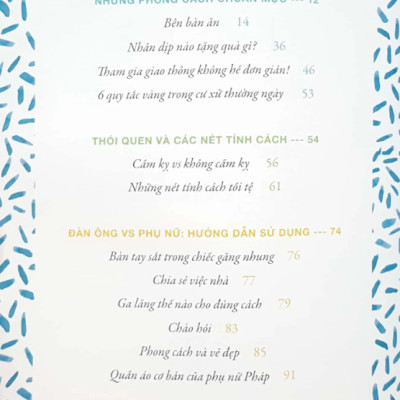 NHỮNG PHONG CÁCH CHUẨN MỰC --- 12
Bên bàn ăn 14
Nhân dịp nào tặng quà gì? 36
Tham gia giao thông không hề đơn giản! 46
6 quy tắc vàng trong cư xử thường ngày 53
THÓI QUEN VÀ CÁC NÉT TÍNH CÁCH --- 54
Cấm kỵ vs không cấm kỵ 56
Những nét tính cách tồi tệ 61
ĐÀN ÔNG VS PHỤ NỮ: HƯỚNG DẪN SỬ DỤNG --- 74
Bàn tay sắt trong chiếc găng nhung 76
Chia sẻ việc nhà 77
Ga lăng thế nào cho đúng cách 79
Chào hỏi 83
Phong cách và vẻ đẹp 85
Quần áo cơ bản của phụ nữ Pháp 91